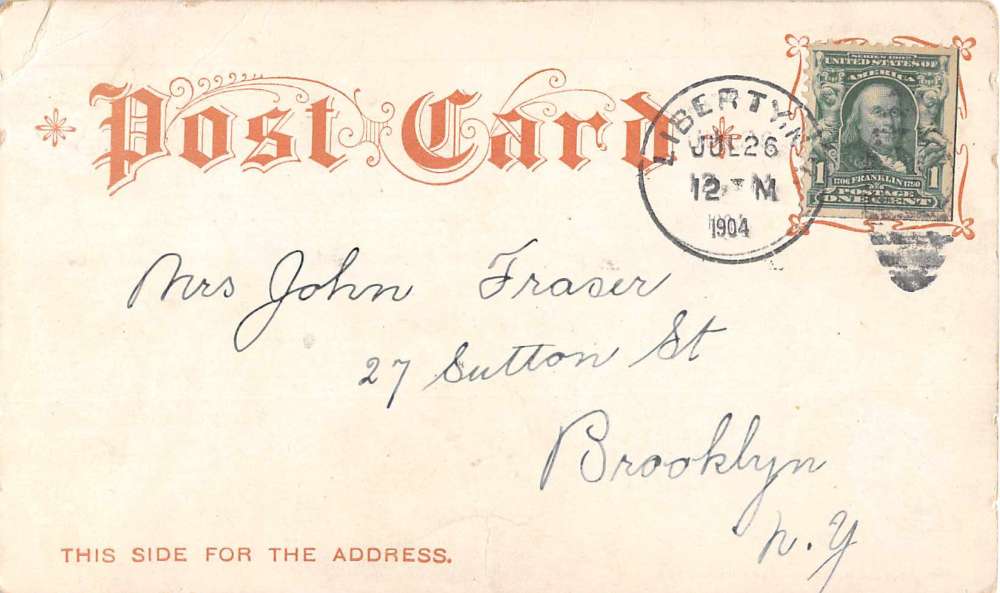 Post Card
LIBERTY, N
JUL 26
12 - M
1904
SERIES 1902
UNITED STATES OF
AMERICA
1 1706 FRANKLIN 1790 1
POSTAGE
ONE CENT
Mrs John Fraser
27 Sutton St
Brooklyn
N. Y
THIS SIDE FOR THE ADDRESS.